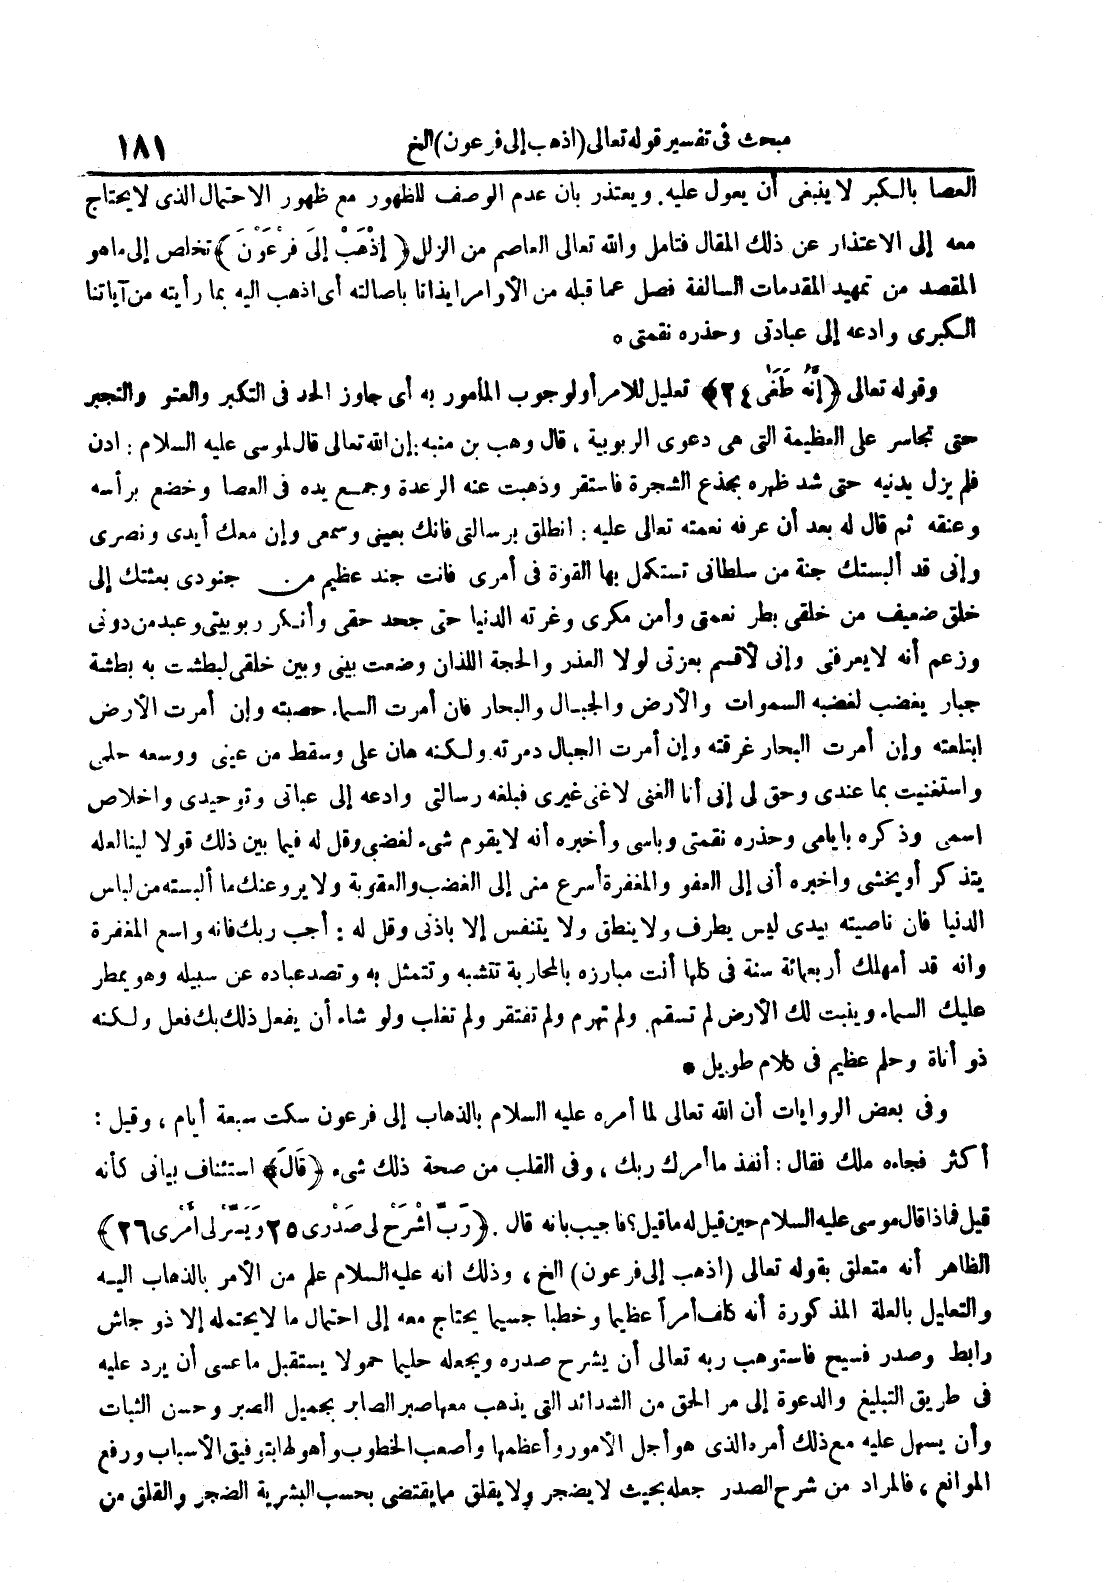 مبحث فى تفسير قوله تعالى (اذهب إلى فرعون) الخ ١٨١
العصا بالكبر لا ينبغى أن يعول عليه. ويعتذر بان عدم الوصف للظهور مع ظهور الاحتمال الذى لا يحتاج
معه إلى الاعتذار عن ذلك المقال فتامل والله تعالى العاصم من الزلل ﴿ إِذْهَبْ إِلَى فِرْعَوْنَ ﴾ تخلص إلى ماهو
المقصد من تمهيد المقدمات السالفة فصل عما قبله من الأوامر ايذانا باصالته أى اذهب اليه بما رأيته من آياتنا
الكبرى وادعه إلى عبادتى وحذره نقمتى *
وقوله تعالى ﴿ إِنَّهُ طَغَى ٢٤ ﴾ تعليل للامر أو لوجوب المأمور به أى جاوز الحد فى التكبر والعتو والتجبر
حتى تجاسر على العظيمة التى هى دعوى الربوبية ، قال وهب بن منبه: إن الله تعالى قال لموسى عليه السلام : ادن
فلم يزل يدنيه حتى شد ظهره بجذع الشجرة فاستقر وذهبت عنه الرعدة وجمع يده فى العصا وخضع برأسه
وعنقه ثم قال له بعد أن عرفه نعمته تعالى عليه : انطلق برسالتى فانك بعينى وسمعى وإن معك أيدى ونصرى
وإنى قد ألبستك جنة من سلطانى تستكمل بها القوة فى أمرى فانت جند عظيم من جنودى بعثتك إلى
خلق ضعيف من خلقى بطر نعمتى وأمن مكرى وغرته الدنيا حتى جحد حقى وأنكر ربوبيتى وعبد من دونى
وزعم أنه لا يعرفنى وإنى لأقسم بعزتى لولا العذر والحجة اللذان وضعت بينى وبين خلقى لبطشت به بطشة
جبار يغضب لغضبه السموات والأرض والجبال والبحار فان أمرت السماء حصبته وإن أمرت الأرض
ابتلعته وإن أمرت البحار غرقته وإن أمرت الجبال دمرته ولكنه هان على وسقط من عينى ووسعه حلمى
واستغنيت بما عندى وحق لى إنى أنا الغنى لاغنى غيرى فبلغه رسالتى وادعه إلى عباتى وتوحيدى واخلاص
اسمى وذكره بايامى وحذره نقمتى وباسى وأخبره أنه لا يقوم شىء لغضبى وقل له فيما بين ذلك قولا لينا لعله
يتذكر أو يخشى واخبره أنى إلى العفو والمغفرة أسرع منى إلى الغضب والعقوبة ولا يروعنك ما ألبسته من لباس
الدنيا فان ناصيته بيدى ليس يطرف ولا ينطق ولا يتنفس إلا باذنى وقل له : أجب ربك فانه واسع المغفرة
وانه قد أمهلك أربعمائة سنة فى كلها أنت مبارزه بالمحاربة تتشبه وتتمثل به وتصد عباده عن سبيله وهو يمطر
عليك السماء وينبت لك الأرض لم تسقم ولم تهرم ولم تفتقر ولم تغلب ولو شاء أن يفعل ذلك بك فعل ولكنه
ذو أناة وحلم عظيم فى كلام طويل *
وفى بعض الروايات أن الله تعالى لما أمره عليه السلام بالذهاب إلى فرعون سكت سبعة أيام ، وقيل :
أكثر فجاءه ملك فقال : أنفذ ما أمرك ربك ، وفى القلب من صحة ذلك شىء ﴿ قَالَ ﴾ استئناف بيانى كأنه
قيل فماذا قال موسى عليه السلام حين قيل له ماقيل؟ فاجيب بانه قال . ﴿ رَبِّ اشْرَحْ لِى صَدْرِى ٢٥ وَيَسِّرْ لِى أَمْرِى ٢٦ ﴾
الظاهر أنه متعلق بقوله تعالى (اذهب إلى فرعون) الخ ، وذلك انه عليه السلام علم من الأمر بالذهاب اليه
والتعليل بالعلة المذكورة أنه كلف أمراً عظيما وخطبا جسيما يحتاج معه إلى احتمال ما لا يحتمله إلا ذو جاش
رابط وصدر فسيح فاستوهب ربه تعالى أن يشرح صدره ويجعله حليما حمولا يستقبل ماعسى أن يرد عليه
فى طريق التبليغ والدعوة إلى مر الحق من الشدائد التى يذهب معها صبر الصابر بجميل الصبر وحسن الثبات
وأن يسهل عليه مع ذلك أمره الذى هو أجل الأمور وأعظمها وأصعب الخطوب وأهولها بتوفيق الأسباب ورفع
الموانع ، فالمراد من شرح الصدر جعله بحيث لا يضجر ولا يقلق مما يقتضى بحسب البشرية الضجر والقلق من